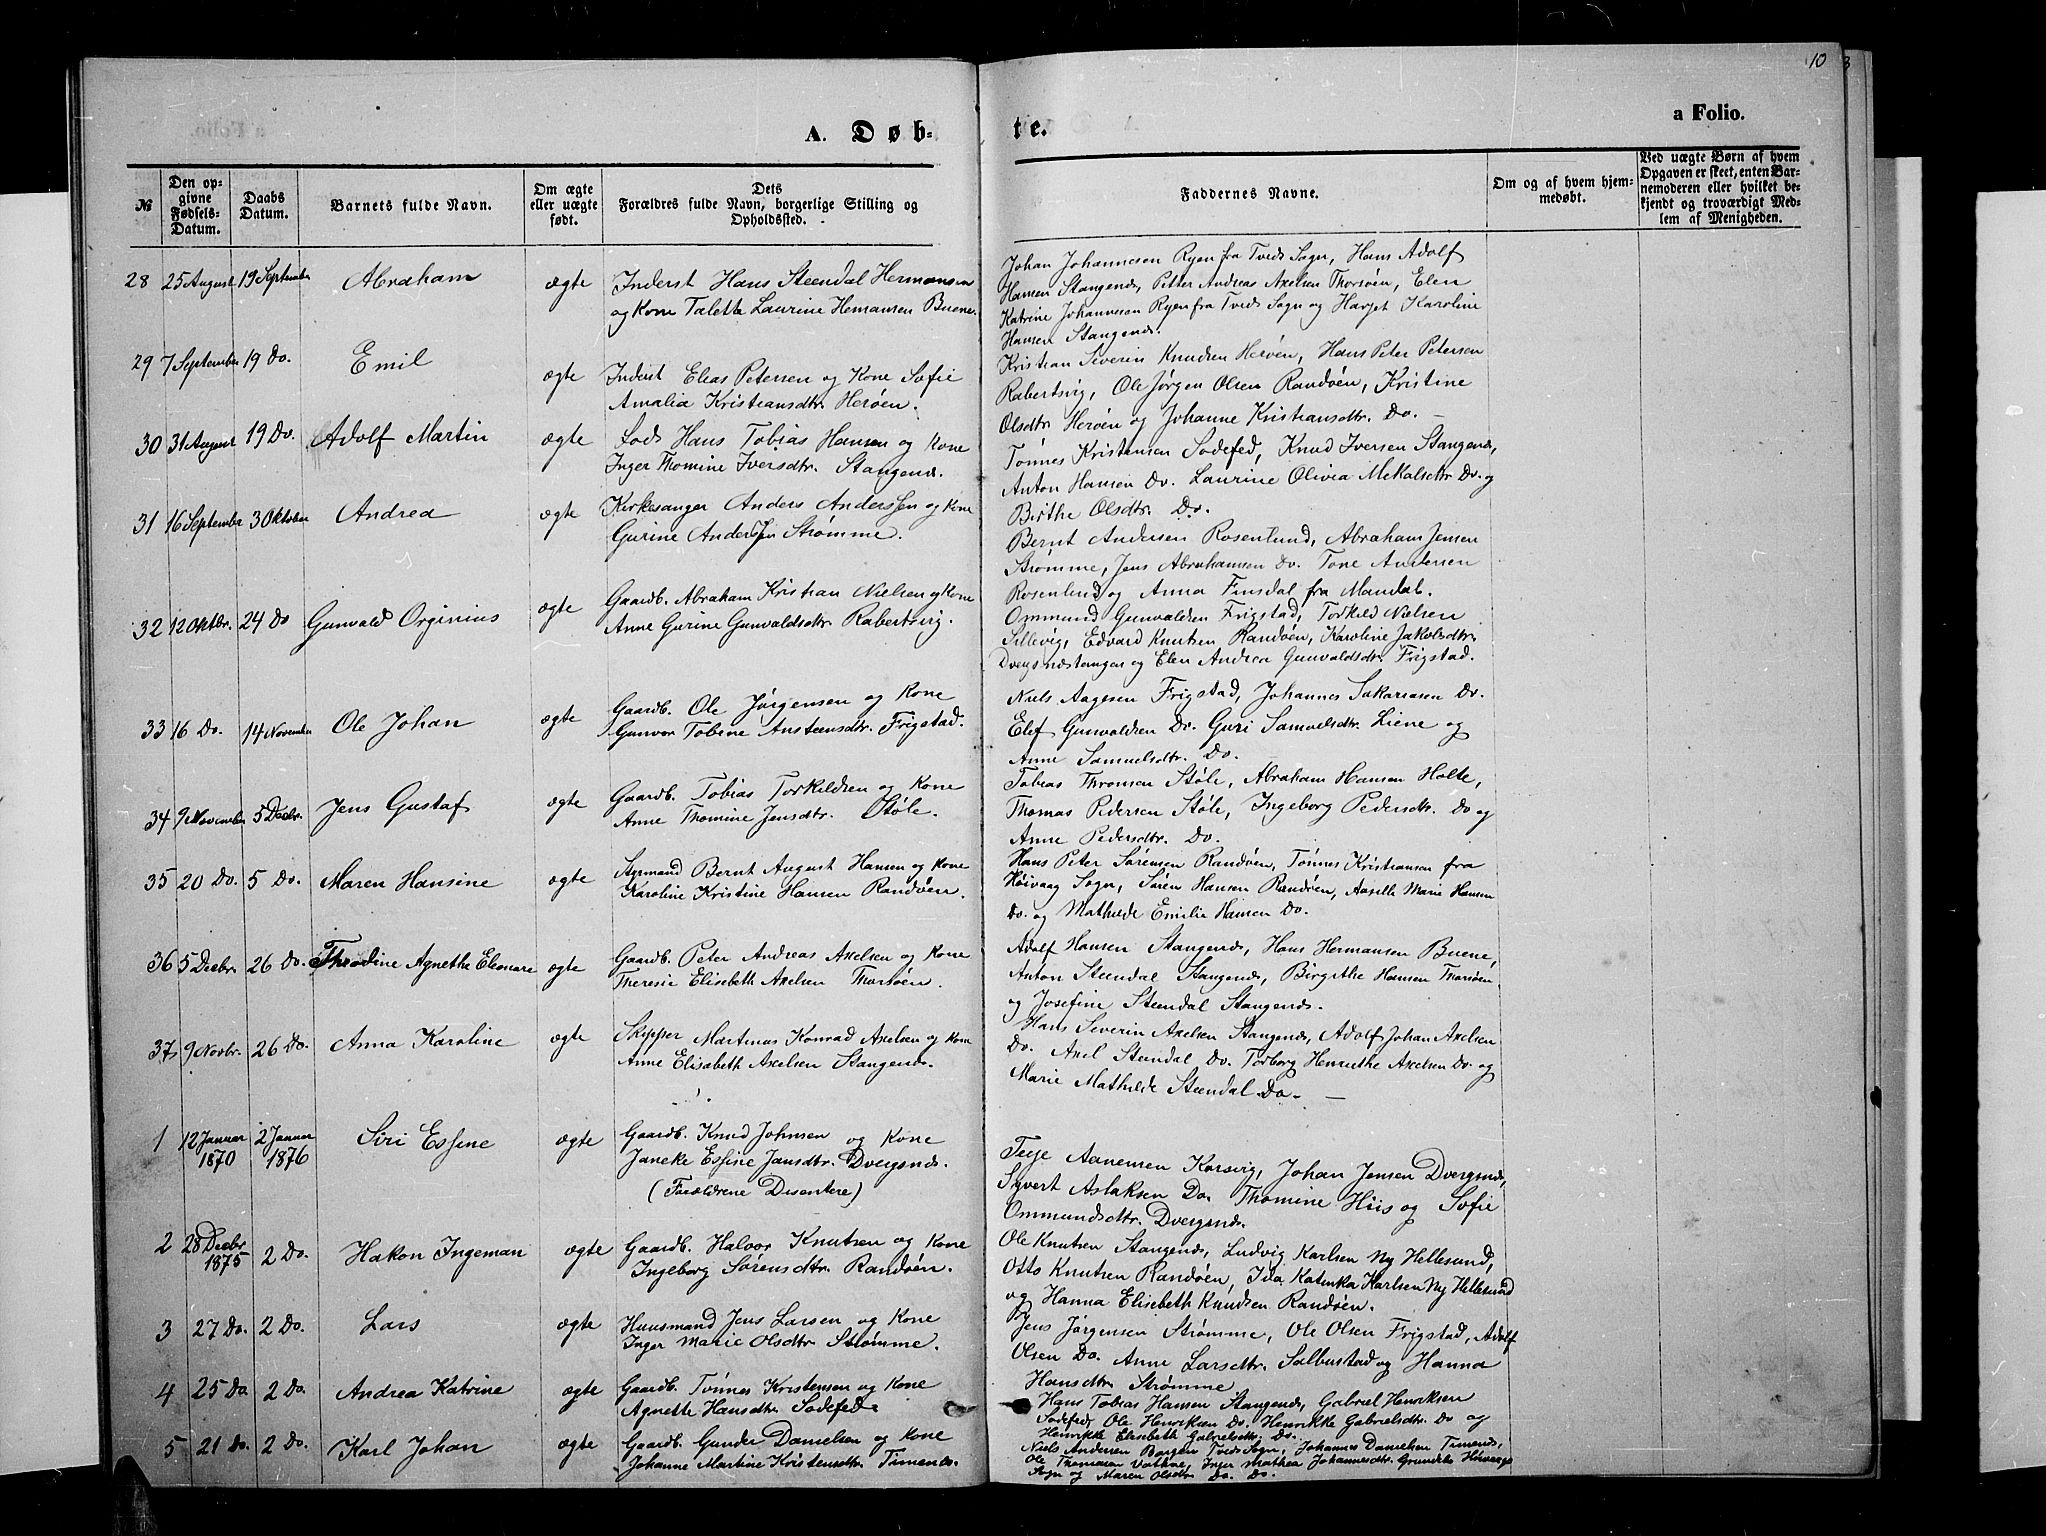 10
3
a Folio.
A. Døb-
te.
№
Den op-
givne
Fødsels-
Datum.
Daabs
Datum.
Barnets fulde Navn.
Om ægte
eller uægte
født.
Dets
Forældres fulde Navn, borgerlige Stilling og
Opholdssted.
Faddernes Navne.
Om og af hvem hjem-
medøbt.
Ved uægte Børn af hvem
Opgaven er skeet, enten Bar-
nemoderen eller hvilket be-
kjendt og troværdigt Med-
lem af Menigheden.
28 25 August 19 September Abraham ægte Inderst Hans Steendal Hermansen
og Kone Talette Laurine Hemansen Buene.
Johan Johannesen Ryen fra Tveds Sogn, Hans Adolf
Hansen Stangenes, Petter Andreas Axelsen Thorsøen, Elen
Katrine Johannesen Ryen fra Tveds Sogn og Harjet Karoline
Hansen Stangenes.
29 7 September 19 Do. Emil ægte Inderst Elias Petersen og Kone Sofie
Amalia Kristiansdtr. Herøen.
Kristian Severin Knudsen Herøen, Hans Peter Petersen
Rabertsvig, Ole Jørgen Olsen Randøen, Kristine
Olsdtr. Herøen og Johanne Kristiansdtr. Do. —
30 31 August 19 Do. Adolf Martin ægte Lods Hans Tobias Hansen og Kone
Inger Thomine Iversdtr. Stangenes.
Tønnes Kristensen Sodefed, Knud Iversen Stangenes,
Anton Hansen Do. Laurine Olivia Mekalsdtr. Do. og
Birthe Olsdtr. Do.
31 16 September 3 Oktober Andrea ægte Kirkesanger Anders Anderssen og Kone
Gurine Anderssen Strømme.
Bernt Andersen Rosenlund, Abraham Jensen
Strømme, Jens Abrahamsen Do. Tone Andersen
Rosenlund og Anna Finsdal fra Mandal.
32 12 Oktbr. 24 Do Gunvald Orginius ægte Gaardb. Abraham Kristian Nielsen og Kone
Anne Gurine Gunvaldsdtr. Rabertsvig.
Ommund Gunvaldsen Frigstad, Torkild Nielsen
Sillevig, Edvard Knutsen Randøen, Karoline Jakobsdtr.
Dvergsnestangen og Elen Andrea Gunvaldsdtr. Frigstad.
33 16 Do. 14 November Ole Johan ægte Gaardb. Ole Jørgensen og Kone
Gunvor Tobine Ansteensdtr. Frigstad.
Niels Aagesen Frigstad, Johannes Sakariasen Do.
Elef Gunvaldsen Do. Guri Samuelsdtr. Liene og
Anne Samuelsdtr. Do.
34 9 November 5 Decbr. Jens Gustaf ægte Gaardb. Tobias Torkildsen og Kone
Anne Thomine Jensdtr. Støle.
Tobias Thronsen Støle, Abraham Hansen Holte,
Thomas Pedersen Støle, Ingeborg Pedersdtr. Do og
Anne Pedersdtr. Do.
35 20 Do. 5 Do. Maren Hansine ægte Styrmand Bernt August Hansen og Kone
Karoline Kristine Hansen Randøen.
Hans Peter Sørensen Randøen, Tønnes Kristiansen fra
Høivaag Sogn, Søren Hansen Randøen, Aaselle Marie Hansen
Do. og Mathilde Emilie Hansen Do.
36 5 Decbr. 26 Do. Agnethe Eleonore ægte Gaardb. Peter Andreas Axelsen og Kone
Theresie Elisebeth Axelsen Thorsøen.
Adolf Hansen Stangenes, Hans Hermansen Buene,
Anton Steendal Stangenes, Birgithe Hansen Thorsøen
og Josefine Steendal Stangenes.
37 9 Novbr. 26 Do. Anna Karoline ægte Skipper Martinus Konrad Axelsen og Kone
Anne Elisabeth Axelsen Stangenes.
Hans Severin Axelsen Stangenes, Adolf Johan Axelsen
Do. Axel Steendal Do. Torborg Henriethe Axelsen Do. og
Marie Mathilde Steendal Do. —
1 12 Januar 1870 2 Januar 1876 Siri Essine ægte Gaardb. Knud Johnsen og Kone
Janeke Essine Jansdtr. Dvergsnes.
(Forældrene Disentere)
Terje Aanensen Korsvig, Johan Jensen Dvergsnes,
Syvert Aslaksen Do. Thomine Hiis og Sofie
Ommundsdtr. Dvergsnes.
2 28 Decbr 1875 2 Do. Hakon Ingeman ægte Gaardb. Halvor Knutsen og Kone
Ingeborg Sørensdtr. Randøen.
Ole Knutsen Stangenes, Ludvig Karlsen Ny Hellesund,
Otto Knutsen Randøen, Ida Katinka Karlsen Ny Hellesund
og Hanna Elisebeth Knudsen Randøen.
3 27 Do. 2 Do. Lars ægte Huusmand Jens Larsen og Kone
Inger Marie Olsdtr. Strømme.
Jens Jørgensen Strømme, Ole Olsen Frigstad, Adolf
Olsen Do. Anne Larsdtr. Salbustad og Hanna
Hansdtr. Strømme
4 25 Do 2 Do. Andrea Katrine ægte Gaardb. Tønnes Kristensen og Kone
Agnette Hansdtr. Sodefed.
Hans Tobias Hansen Stangenes, Gabriel Henriksen
Sodefed, Ole Henriksen Do. Henrikke Gabrielsdtr. Do og
Henrikke Elisebeth Gabrielsdtr. Do.
5 21 Do. 2 Do. Karl Johan ægte Gaardb. Gunder Danielsen og Kone
Johanne Martine Kristensdtr. Timenes.
Niels Andersen Borgen Tveds Sogn, Johannes Danielsen Timenes,
Ole Thomassen Vatne, Inger Mathea Johannesdtr. Høivaags
Sogn og Maren Olsdtr. Do. Do.